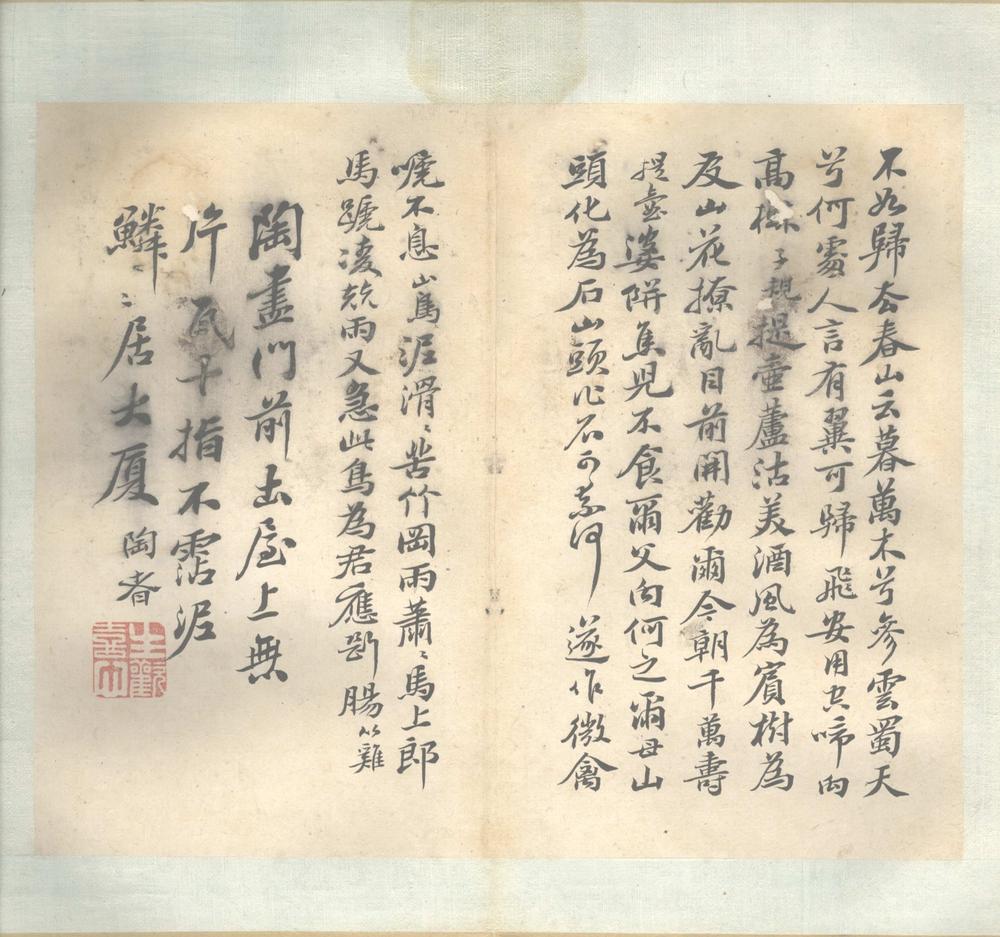 不如歸去春山云暮萬木兮參雲蜀天
兮何處人言有翼可歸飛安用空啼向
高樹子規提壺蘆沽美酒風為賓樹為
友山花撩亂目前開勸爾今朝千萬壽
提壺婆餅焦兒不食爾父向何之爾母山
頭化為石山頭化石可奈何遂作微禽
嘵不息山鳥泥滑〻苦竹岡雨蕭〻馬上郎
馬蹏凌兢雨又急此鳥為君應斷腸竹雞
陶盡門前土屋上無
片瓦十指不霑泥
鱗〻居大厦陶者
生歡喜心